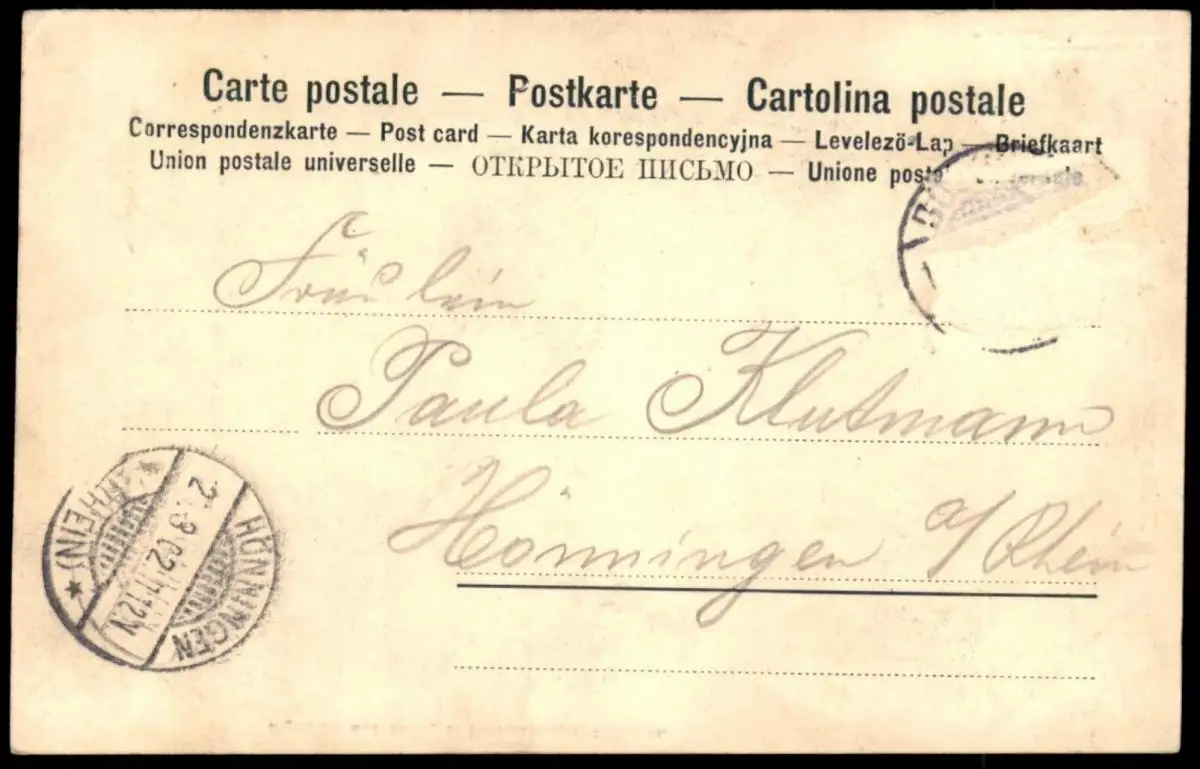 Carte postale — Postkarte — Cartolina postale
Correspondenzkarte — Post card — Karta korespondencyjna — Levelező-Lap — Briefkaart
Union postale universelle — ОТКРЫТОЕ ПИСЬМО — Unione postale
Fräulein
Paula Klutmann
Hönningen a/Rhein
HÖNNINGEN
(RHEIN)